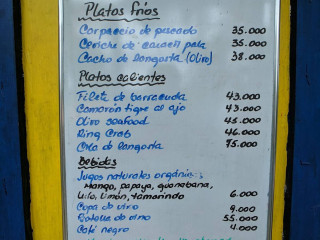 Platos fríos
Carpaccio de pescado 35.000
Ceviche de caracol pala 35.000
Cacho de langosta (Olivo) 38.000
Platos calientes
Filete de barracuda 43.000
Camarón tigre al ajo 43.000
Olivo seafood 45.000
King Crab 46.000
Cola de langosta 75.000
Bebidas
Jugos naturales orgánicos
Mango, papaya, guanabana,
Lulo, limón, tamarindo 6.000
Copa de vino 9.000
Botella de vino 55.000
Café negro 4.000